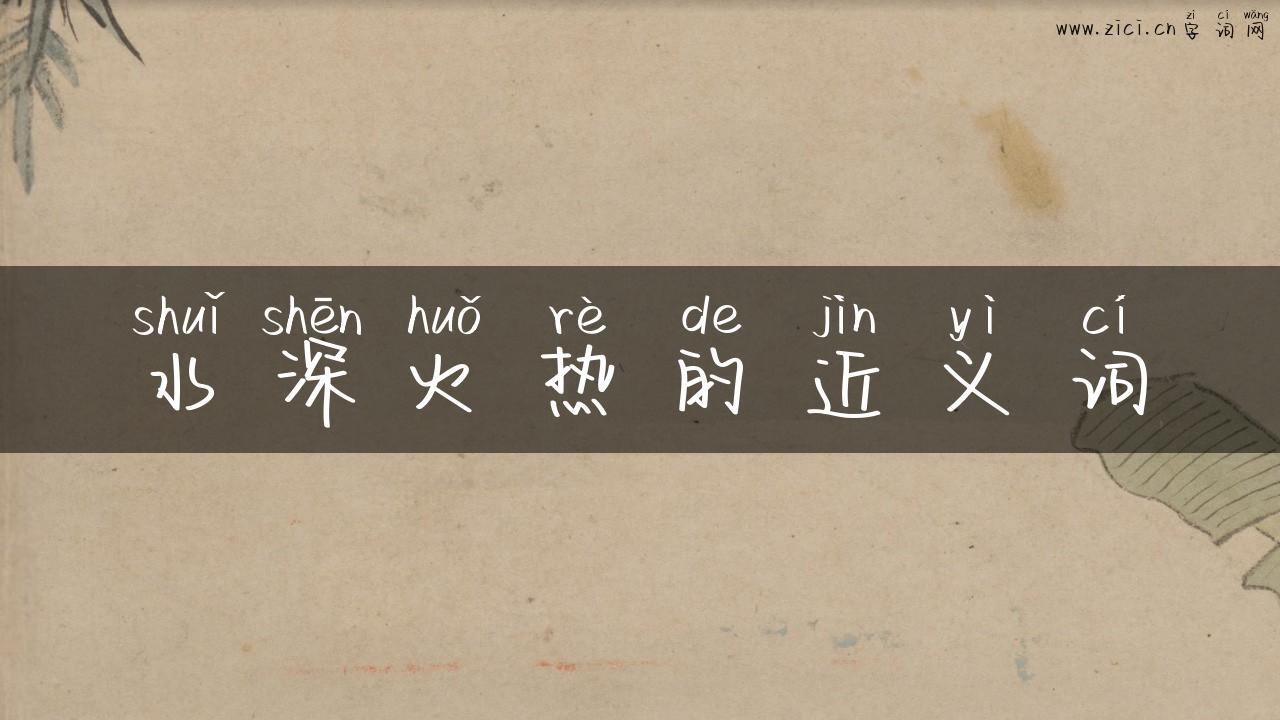 zì cí wǎng
www.zici.cn 字 词 网
shuǐ shēn huǒ rè de jìn yì cí
水 深 火 热 的 近 义 词